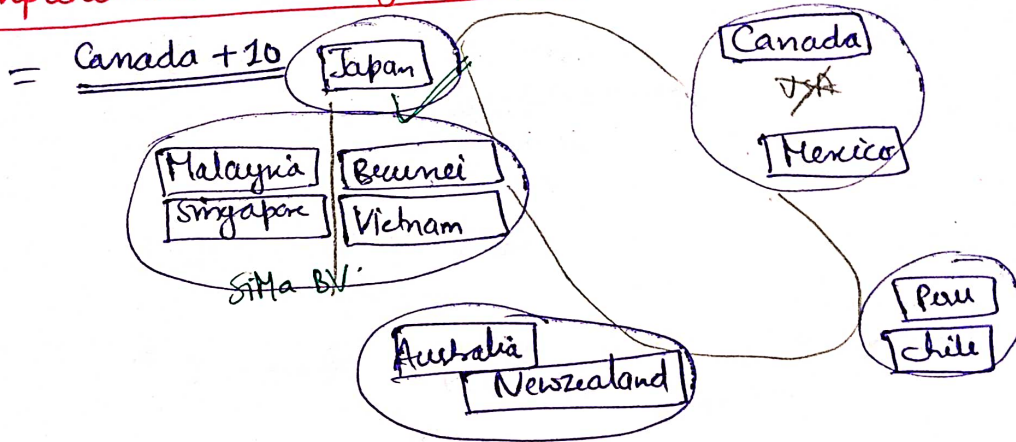 = Canada + 10
Japan
Canada
USA
Mexico
Malaysia
Brunei
Singapore
Vietnam
SiMa BV
Australia
Newzealand
Peru
Chile